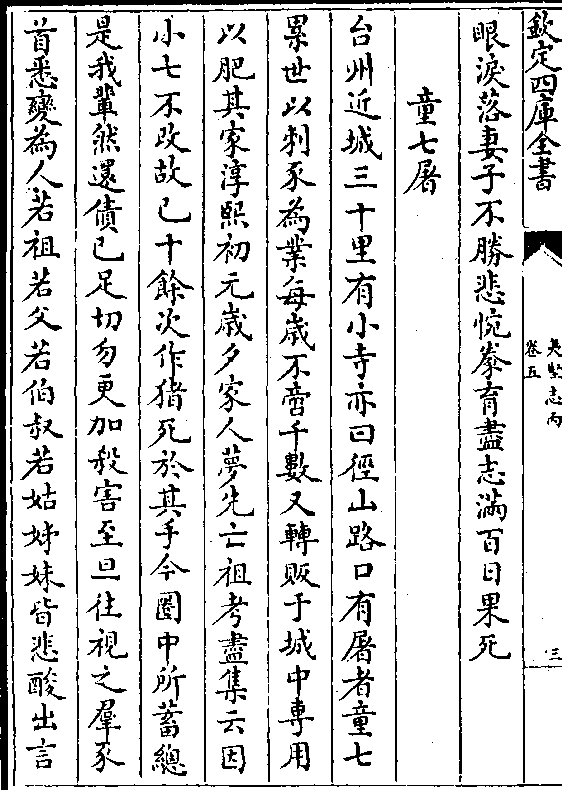 欽定四庫全書
夷堅志丙
卷五
三
眼淚落妻子不勝悲惋拳育盡志滿百日果死
童七屠
台州近城三十里有小寺亦曰徑山路口有屠者童七
累世以刺豕為業每歲不啻千數又轉販于城中專用
以肥其家淳熙初元歲夕家人夢先亡祖考盡集云因
小七不改故已十餘次作猪死於其手今圈中所蓄總
是我輩然還債已足切勿更加殺害至旦往視之羣豕
首悉變為人若祖若父若伯叔若姑姊妹皆悲酸出言